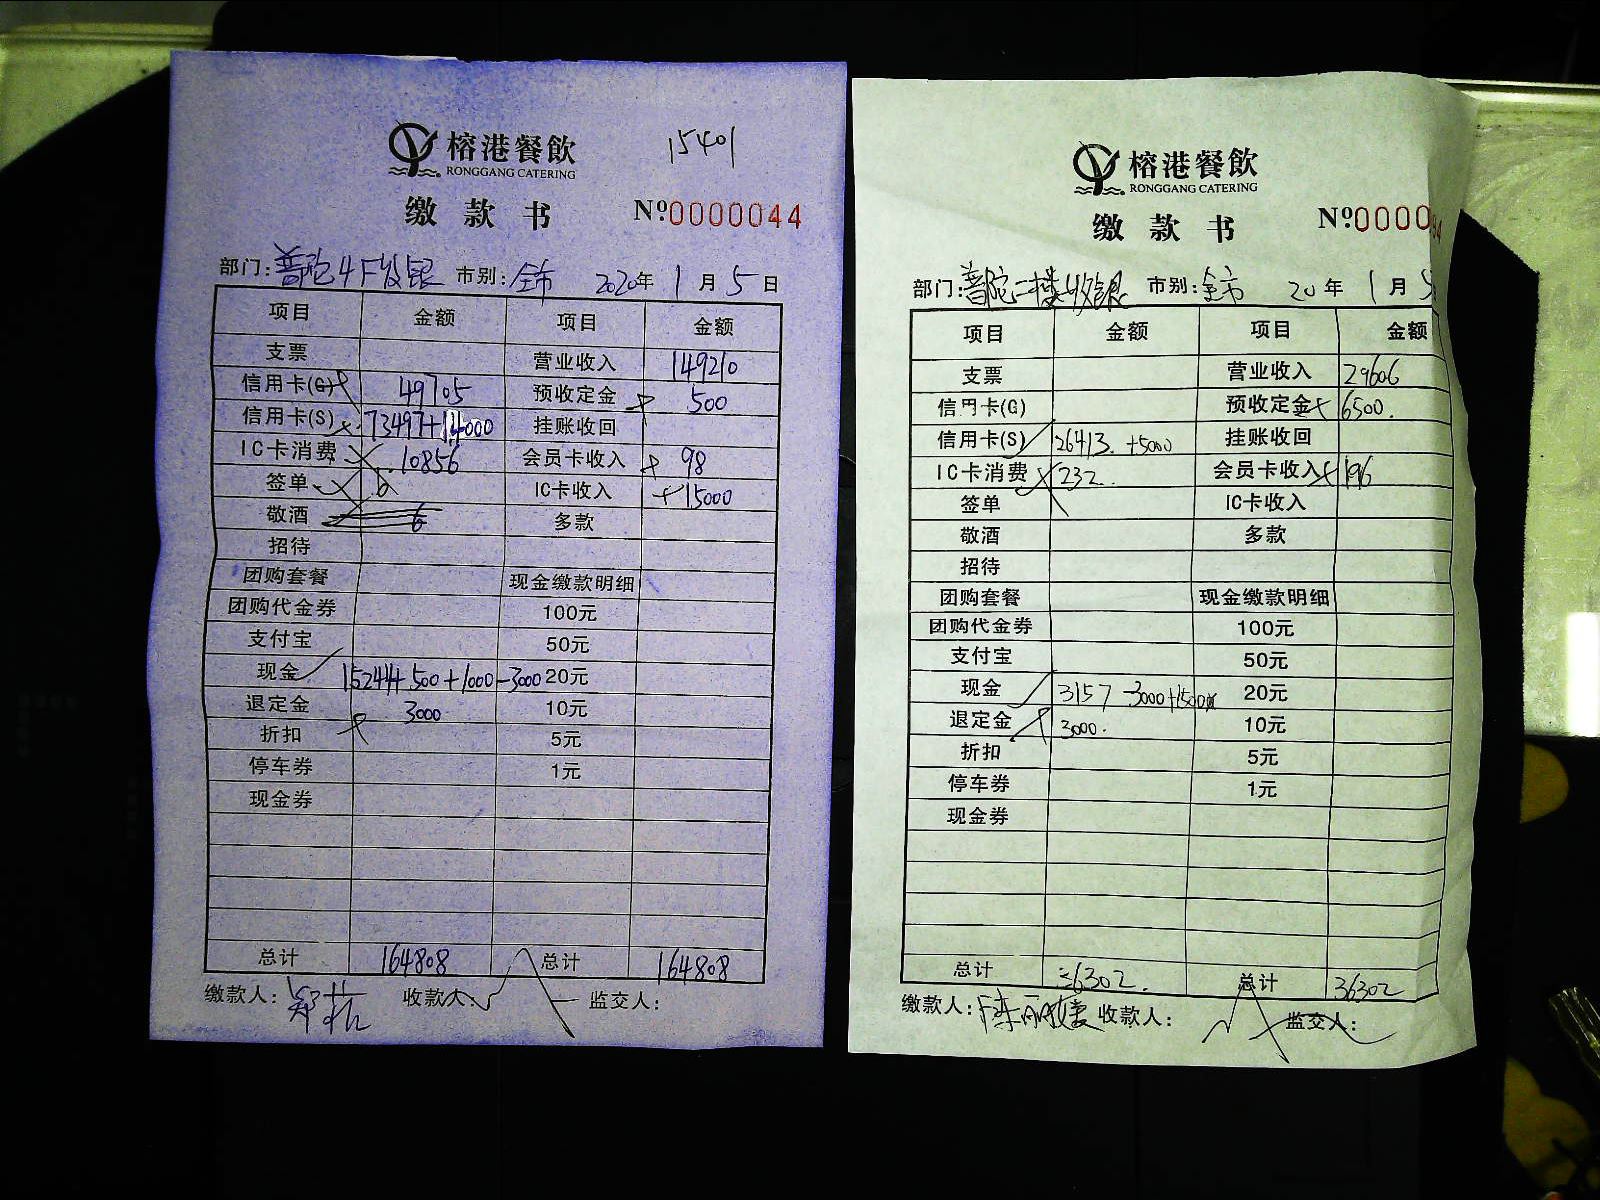 榕港餐飲
RONGGANG CATERING
15401
缴款书
Nº:0000044
部门:普陀4F收银 市别:全市 2020年1月5日
项目 金额 项目 金额
支票 营业收入 149210
信用卡(G) 49705 预收定金 + 500
信用卡(S) 73497+14000 挂账收回
IC卡消费 10856 会员卡收入 + 98
签单 6 IC卡收入 +15000
敬酒 6 多款
招待
团购套餐 现金缴款明细
团购代金券 100元
支付宝 50元
现金 15244+500+1000-3000 20元
退定金 3000 10元
折扣 5元
停车券 1元
现金券
总计 164808 总计 164808
缴款人: 收款人: 监交人:
榕港餐飲
RONGGANG CATERING
缴款书
Nº:0000
部门:普陀二楼收银 市别:全市 20年1月5
项目 金额 项目 金额
支票 营业收入 29606
信用卡(G) 预收定金+ 6500.
信用卡(S) 26413. +5000 挂账收回
IC卡消费 232. 会员卡收入+ 196
签单 IC卡收入
敬酒 多款
招待
团购套餐 现金缴款明细
团购代金券 100元
支付宝 50元
现金 3157-3000+1500 20元
退定金 3000. 10元
折扣 5元
停车券 1元
现金券
总计 36302. 总计 36302
缴款人:陈丽 收款人: 监交人: